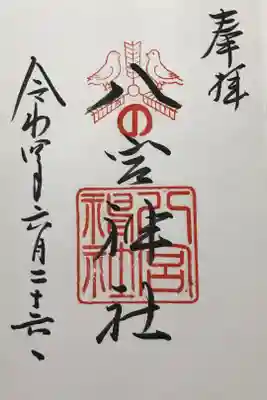 奉拝
八の宮神社
八宮
神社
令和四年六月二十六日